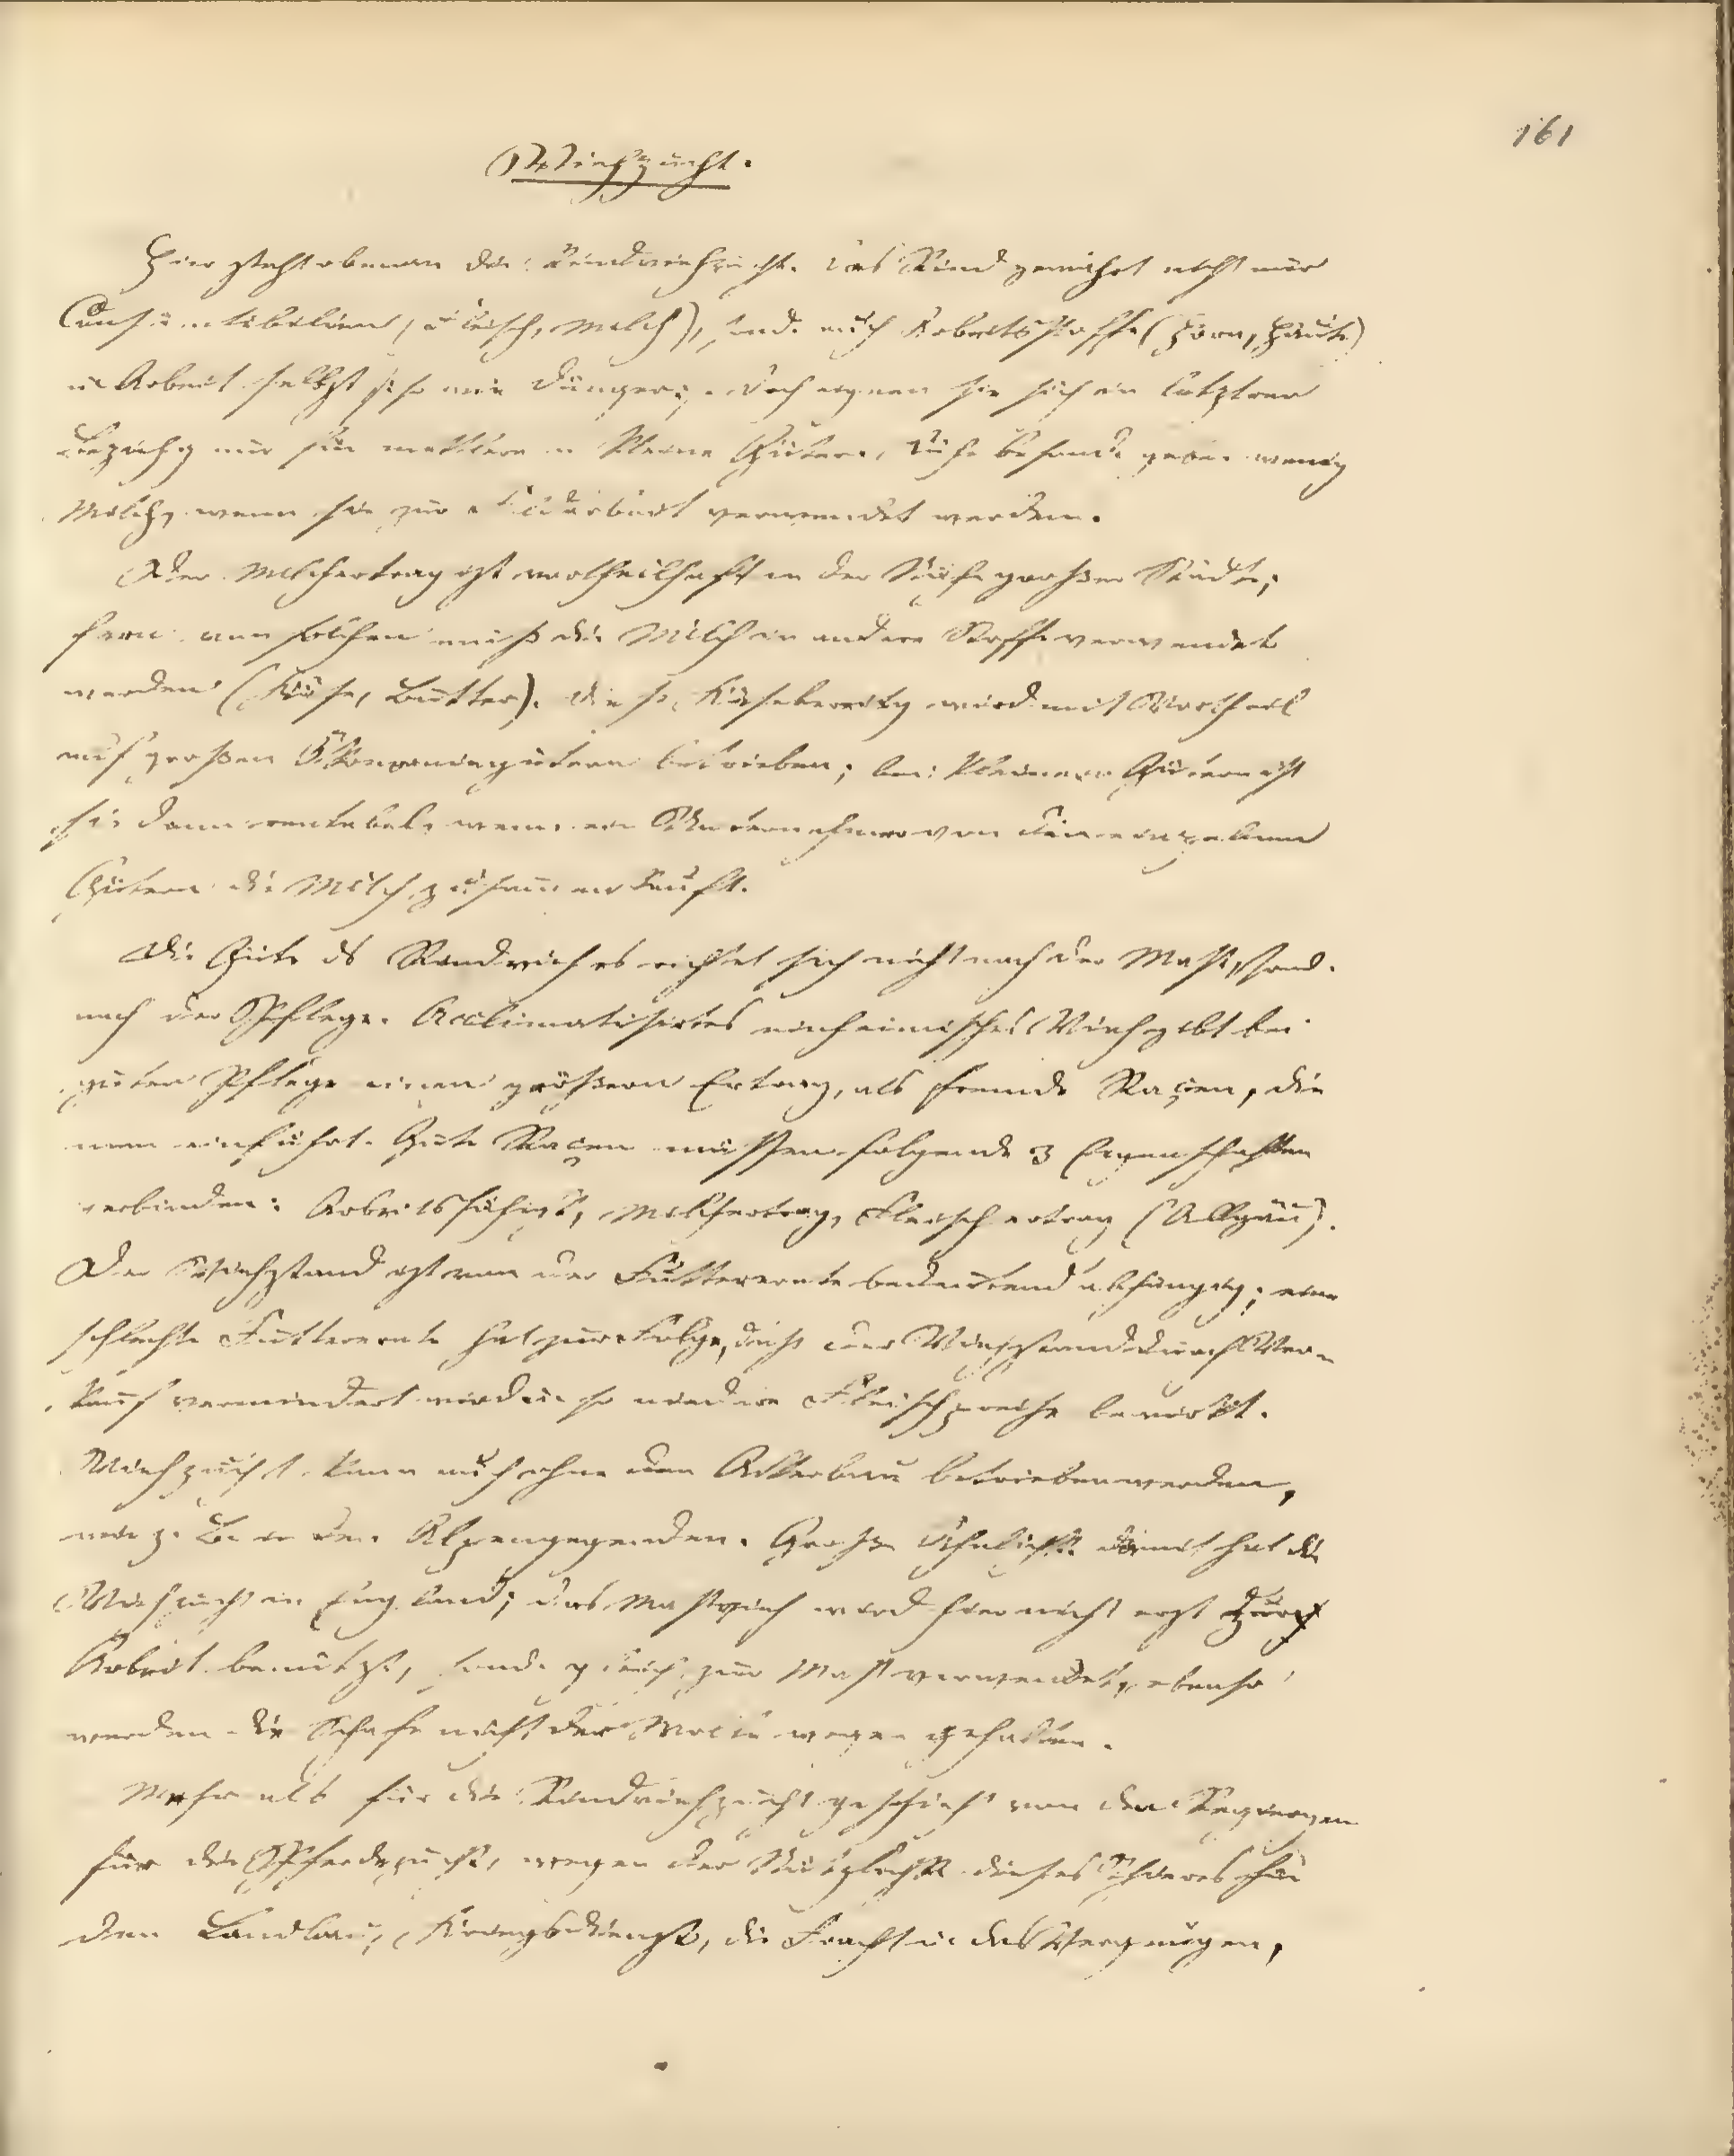 161
Viehzucht.
Hier steht obenan die Rindviehzucht. Das Rind gewährt nicht nur
Consumtibilien (Fleisch, Milch), sond. auch Arbeitsstoffe (Horn, Häute)
u. Arbeit selbst so wie Dünger; doch eignen sie sich in letztrer
Beziehg nur für mittlere u. kleine Güter. Kühe besond. geben wenig
Milch, wenn sie zur Feldarbeit verwendet werden.
Der Milchertrag ist vortheilhaft in der Nähe großer Städte;
fern von solchen muß die Milch in andere Stoffe verwendet
werden (Käse, Butter). Diese Käsebereitg wird mit Vortheil
auf großen Ökonomiegütern betrieben; bei kleineren Gütern ist
sie dann rentabel, wenn ein Unternehmer von den einzelnen
Gütern die Milch zusammenkauft.
Die Güte ds Rindviehes richtet sich nicht nach der Mast, sond.
nach der Pflege. Acclimatisirtes einheimisches Vieh gibt bei
guter Pflege einen größern Ertrag, als fremde Raçen, die
man einführt. Gute Raçen müssen folgende 3 Eigenschaften
verbinden: Arbeitsfähigkt, Milchertrag, Fleischertrag (Allgäu).
Der Viehstand ist von der Futterernte bedeutend abhängig; eine
schlechte Futterernte hat zur Folge, daß der Viehstand durch Ver-
kauf vermindert wird u. so niedere Fleischpreise bewirkt.
Viehzucht kann auch ohne den Ackerbau betrieben werden,
wie z. B. in den Alpengegenden. Große Ähnlichkt. damit hat die
Viehzucht in England; das Mastvieh wird hier nicht erst zur
Arbeit benützt, sond. gleich zur Mast verwendet, ebenso
werden die Schafe nicht der Wolle wegen gehalten.
Mehr als für die Rindviehzucht geschieht von den Regierungen
für die Pferdezucht, wegen der Nützlichkt dieses Thieres für
den Landbau, Kriegsdienst, die Fracht u. das Vergnügen,